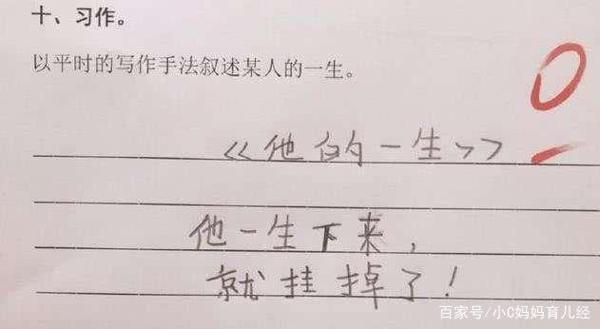 十、习作。
以平时的写作手法叙述某人的一生。
0
《他的一生》
他一生下来，
就挂掉了！
百家号/小C妈妈育儿经